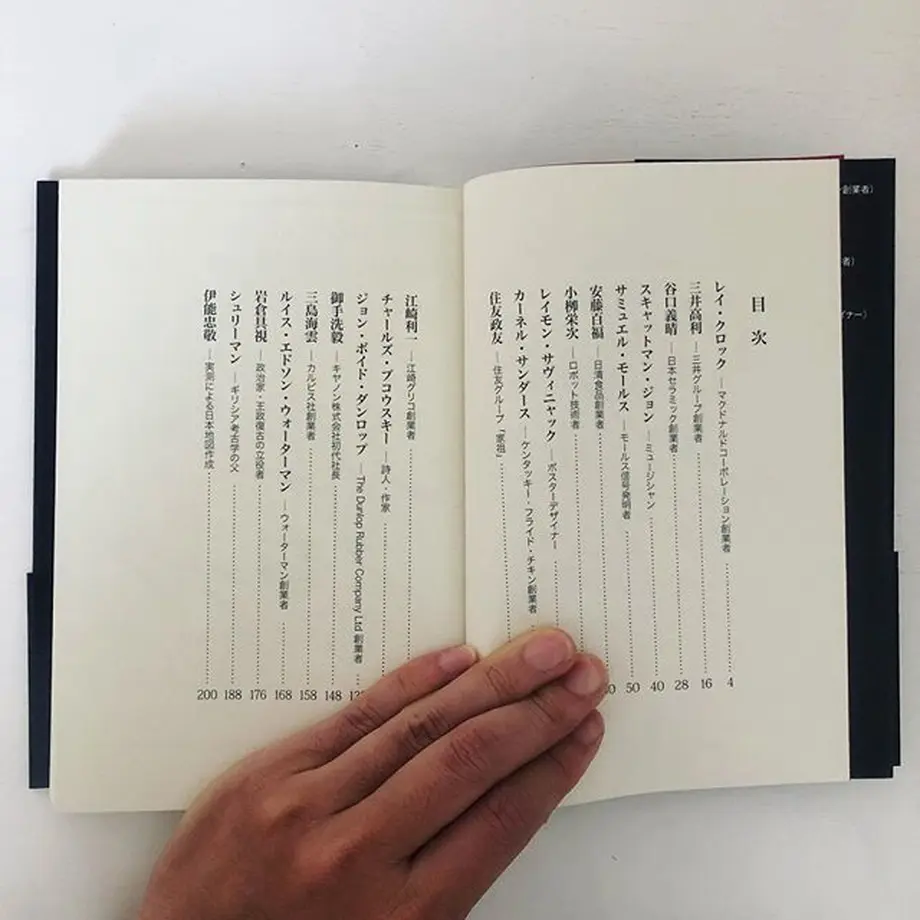 目次
レイ・クロック ―マクドナルドコーポレーション創業者 4
三井高利 ―三井グループ創業者 16
谷口義晴 ―日本セラミック創業者 28
スキャットマン・ジョン ―ミュージシャン 40
サミュエル・モールス ―モールス信号発明者 50
安藤百福 ―日清食品創業者
小栁栄次 ―ロボット技術者
レイモン・サヴィニャック ―ポスターデザイナー
カーネル・サンダース ―ケンタッキー・フライド・チキン創業者
住友政友 ―住友グループ「家祖」
江崎利一 ―江崎グリコ創業者
チャールズ・ブコウスキー ―詩人・作家
ジョン・ボイド・ダンロップ ―The Dunlop Rubber Company Ltd. 創業者
御手洗毅 ―キヤノン株式会社初代社長 148
三島海雲 ―カルピス社創業者 158
ルイス・エドソン・ウォーターマン ―ウォーターマン創業者 168
岩倉具視 ―政治家・王政復古の立役者 176
シュリーマン ―ギリシア考古学の父 188
伊能忠敬 ―実測による日本地図作成 200
創業者）
者）
イナー）